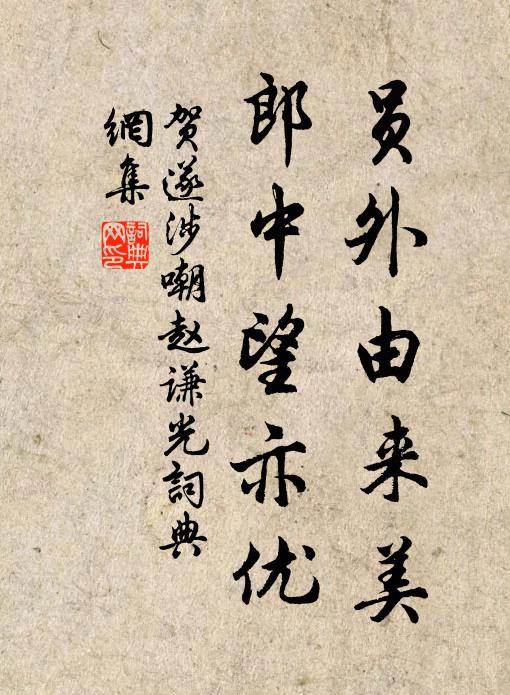 员外由来美
郎中望亦优
贺遂涉嘲赵谦光詞典
網集
詞典
网印